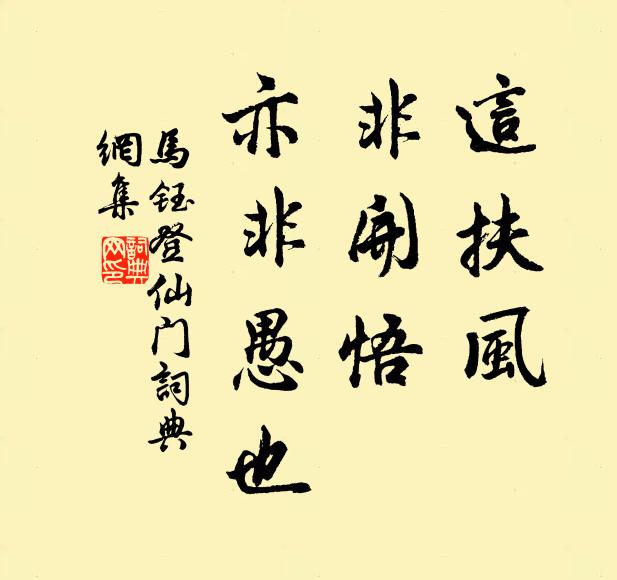 這扶風
非開悟
亦非愚也
馬鈺登仙门詞典
網集
詞典
网印